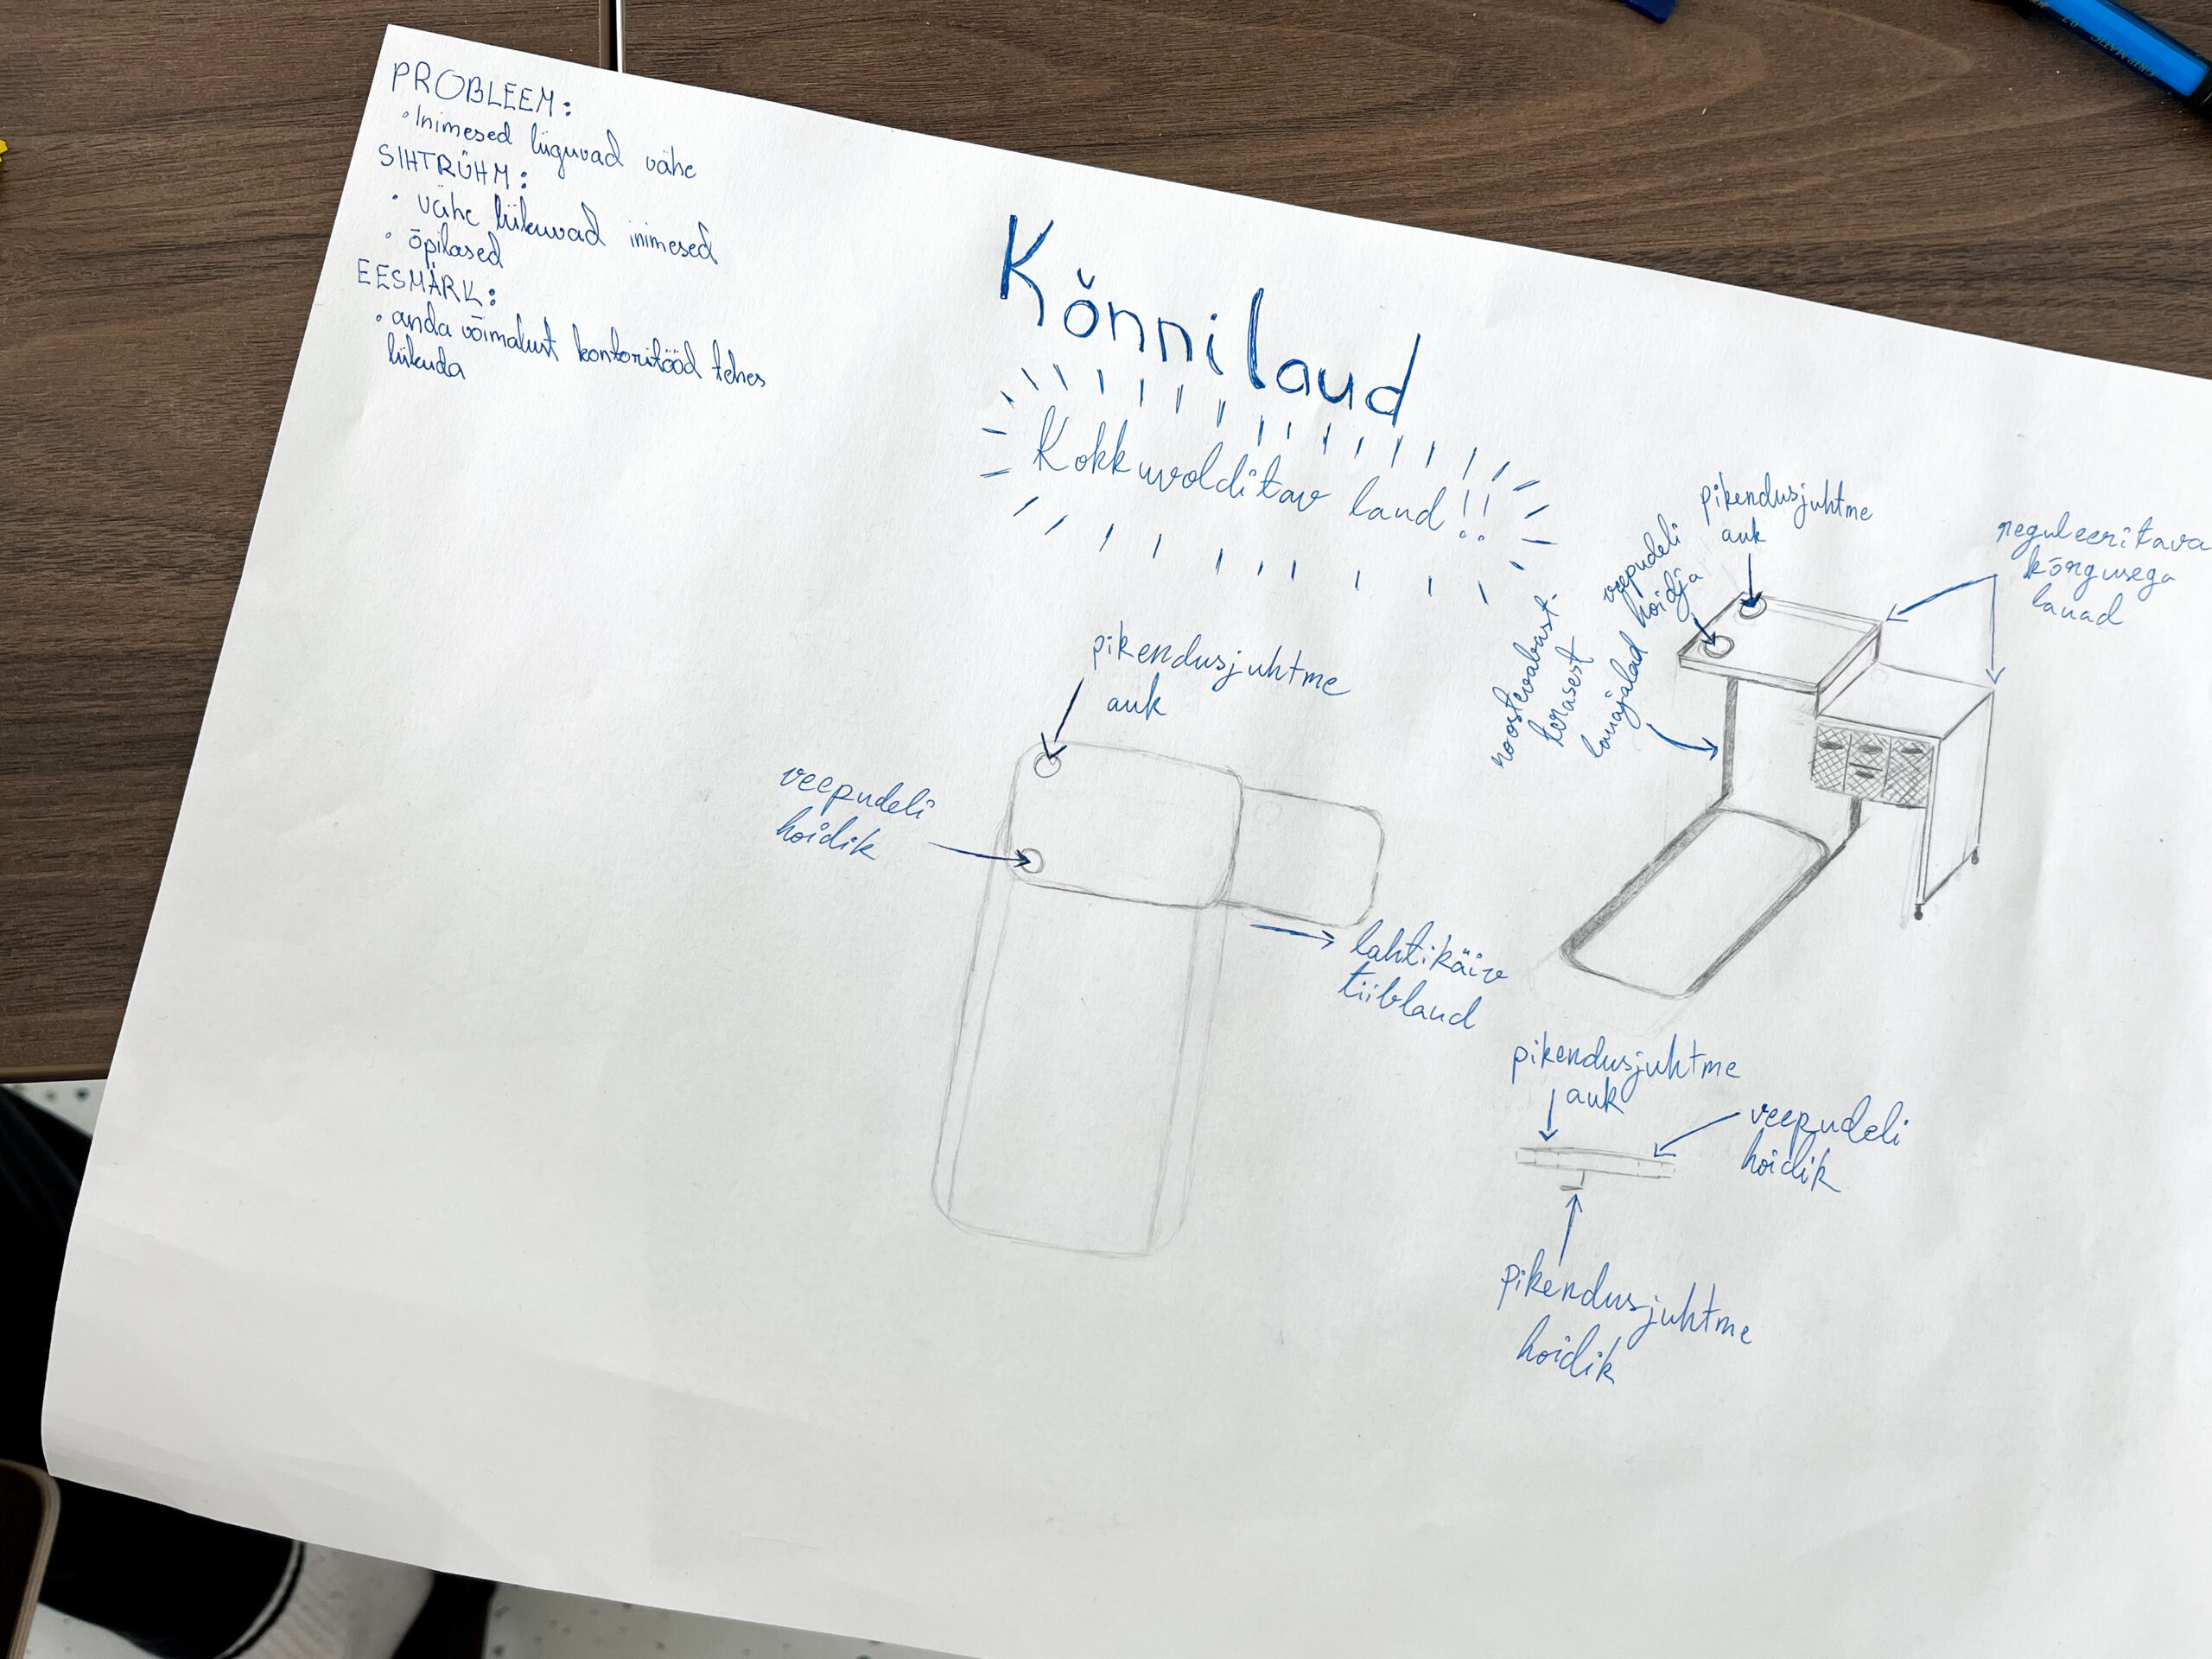 PROBLEEM:
• Inimesed liiguvad vähe
SIHTRÜHM:
• vähe liikuvad inimesed
• õpilased
EESMÄRK:
• anda võimalust kontoritööd tehes
liikuda
Kõnnilaud
Kokkuvolditav laud!!
pikendusjuhtme
auk
veepudeli
hoidik
lahtikäiv
tiiblaud
pikendusjuhtme
auk
veepudeli
hoidja
reguleeritava
kõrgusega
lauad
roostevabast
terasest
lauajalad
pikendusjuhtme
auk
veepudeli
hoidik
pikendusjuhtme
hoidik